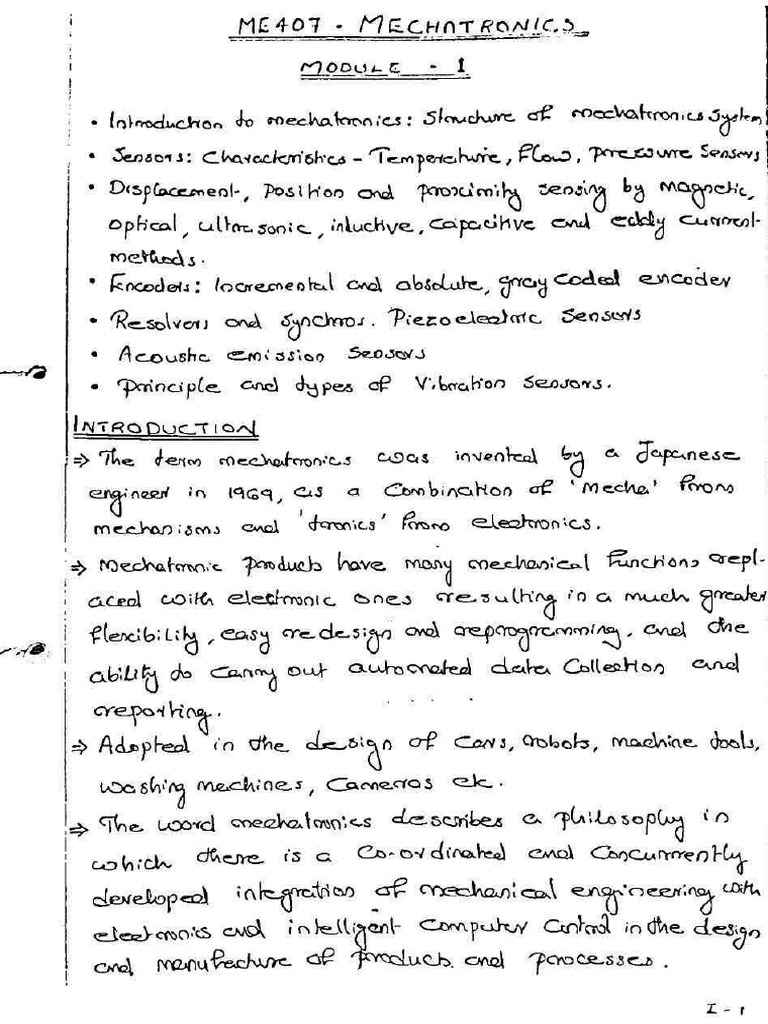 ME407 - MECHATRONICS
MODULE - 1
• Introduction to mechatronics: Structure of mechatronics system
• Sensors: Characteristics - Temperature, flow, pressure sensors
• Displacement, position and proximity sensing by magnetic,
optical, ultrasonic, inductive, capacitive and eddy current
methods.
• Encoders: Incremental and absolute, gray coded encoder
• Resolvers and synchros. Piezoelectric sensors
• Acoustic emission sensors
• Principle and types of vibration sensors.
INTRODUCTION
⇒ The term mechatronics was invented by a Japanese
engineer in 1969, as a combination of 'mecha' from
mechanisms and 'tronics' from electronics.
⇒ Mechatronic products have many mechanical functions repl-
aced with electronic ones resulting in a much greater
flexibility, easy redesign and reprogramming, and the
ability to carry out automated data collection and
reporting.
⇒ Adopted in the design of cars, robots, machine tools,
washing machines, cameras etc.
⇒ The word mechatronics describes a philosophy in
which there is a co-ordinated and concurrently
developed integration of mechanical engineering with
electronics and intelligent computer control in the design
and manufacture of products and processes.
I - 1